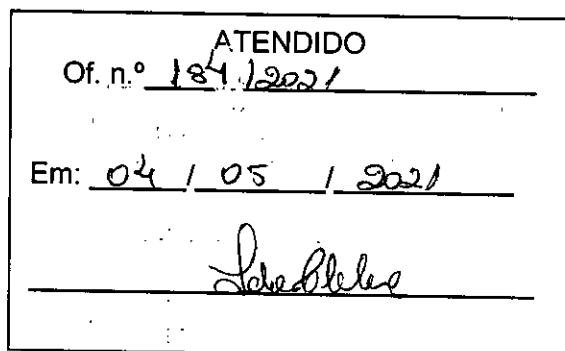 ATENDIDO
Of. n.º 184/2021
Em: 04 / 05 / 2021